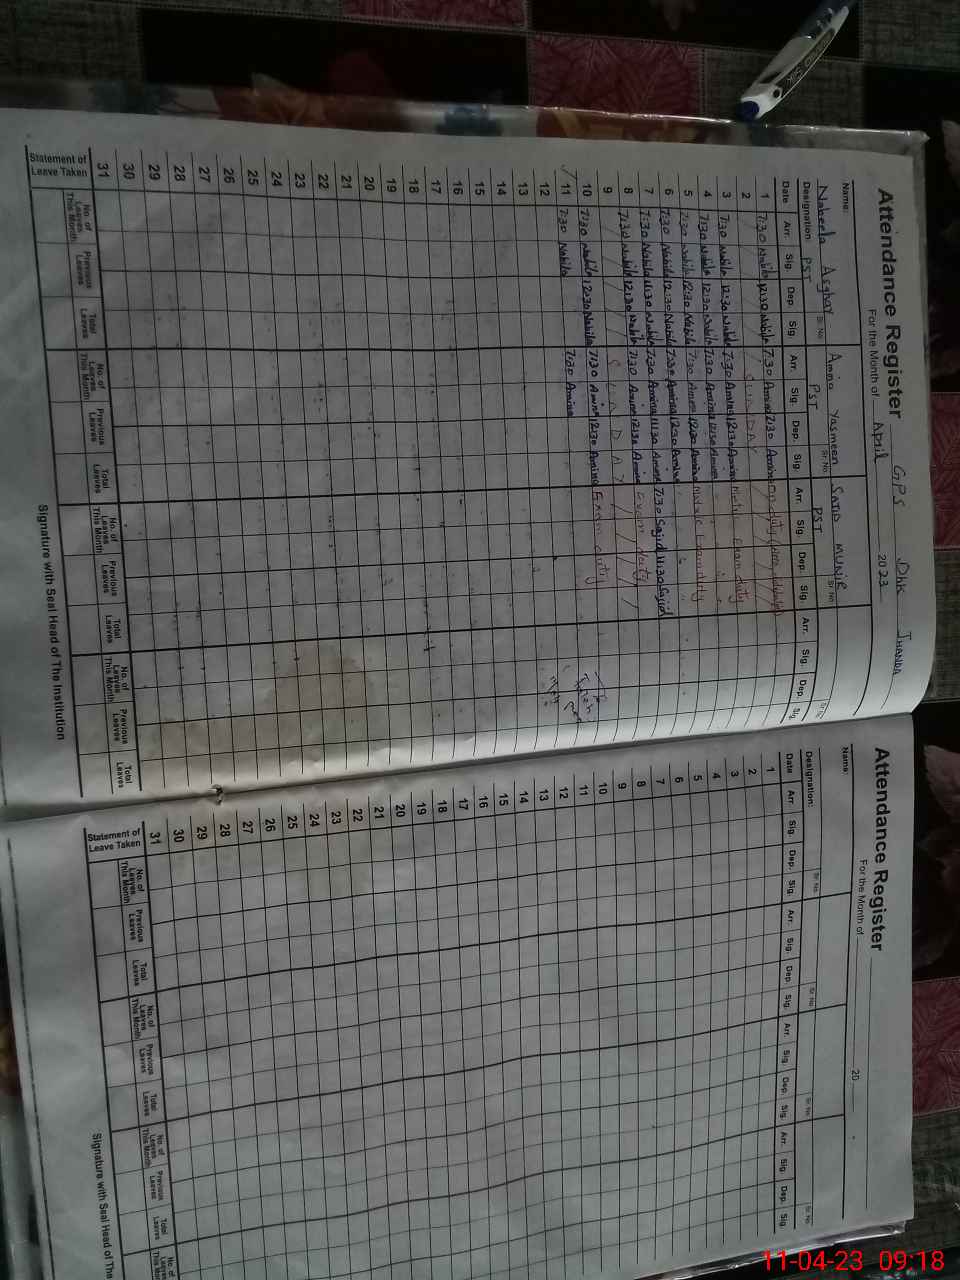 Attendance Register GPS Dhk JHANDA
For the Month of April 2023
Name: Nabeela Asghar Sr. No Amina Yasmeen Sr. No SAJID MUNIR Sr. No
Designation: PST PST PST Sr. No
Date Arr. Sig. Dep. Sig. Arr. Sig. Dep. Sig. Arr. Sig. Dep. Sig. Arr. Sig. Dep. Sig.
1 7:30 Nabila 12:30 Nabila 7:30 Amina 12:30 Amina On duty
2 SUNDAY
3 7:30 Nabila 12:30 Nabila 7:30 Amina 12:30 Amina Exam duty
4 7:30 Nabila 12:30 Nabila 7:30 Amina 12:30 Amina
5 7:30 Nabila 12:30 Nabila 7:30 Amina 12:30 Amina Exam duty
6 7:30 Nabila 12:30 Nabila 7:30 Amina 12:30 Amina
7 7:30 Nabila 11:30 Nabila 7:30 Amina 11:30 Amina 7:30 Sajid 11:30 Sajid
8 7:30 Nabila 12:30 Nabila 7:30 Amina 12:30 Amina Exam duty
9 SUNDAY
10 7:30 Nabila 12:30 Nabila 7:30 Amina 12:30 Amina Exam duty
11 7:30 Nabila 7:30 Amina
12
13
14
15
16
17
18
19
20
21
22
23
24
25
26
27
28
29
30
31
Statement of Leave Taken
No. of Leaves This Month Previous Leaves Total Leaves No. of Leaves This Month Previous Leaves Total Leaves No. of Leaves This Month Previous Leaves Total Leaves No. of Leaves This Month Previous Leaves Total Leaves
Signature with Seal Head of The Institution
Attendance Register
For the Month of 20
Name:
Designation: Sr. No. Sr. No. Sr. No. Sr. No.
Date Arr. Sig. Dep. Sig. Arr. Sig. Dep. Sig. Arr. Sig. Dep. Sig. Arr. Sig. Dep. Sig.
1
2
3
4
5
6
7
8
9
10
11
12
13
14
15
16
17
18
19
20
21
22
23
24
25
26
27
28
29
30
31
Statement of Leave Taken
No. of Leaves This Month Previous Leaves Total Leaves No. of Leaves This Month Previous Leaves Total Leaves No. of Leaves This Month Previous Leaves Total Leaves No. of
Signature with Seal Head of The
11-04-23 09:18